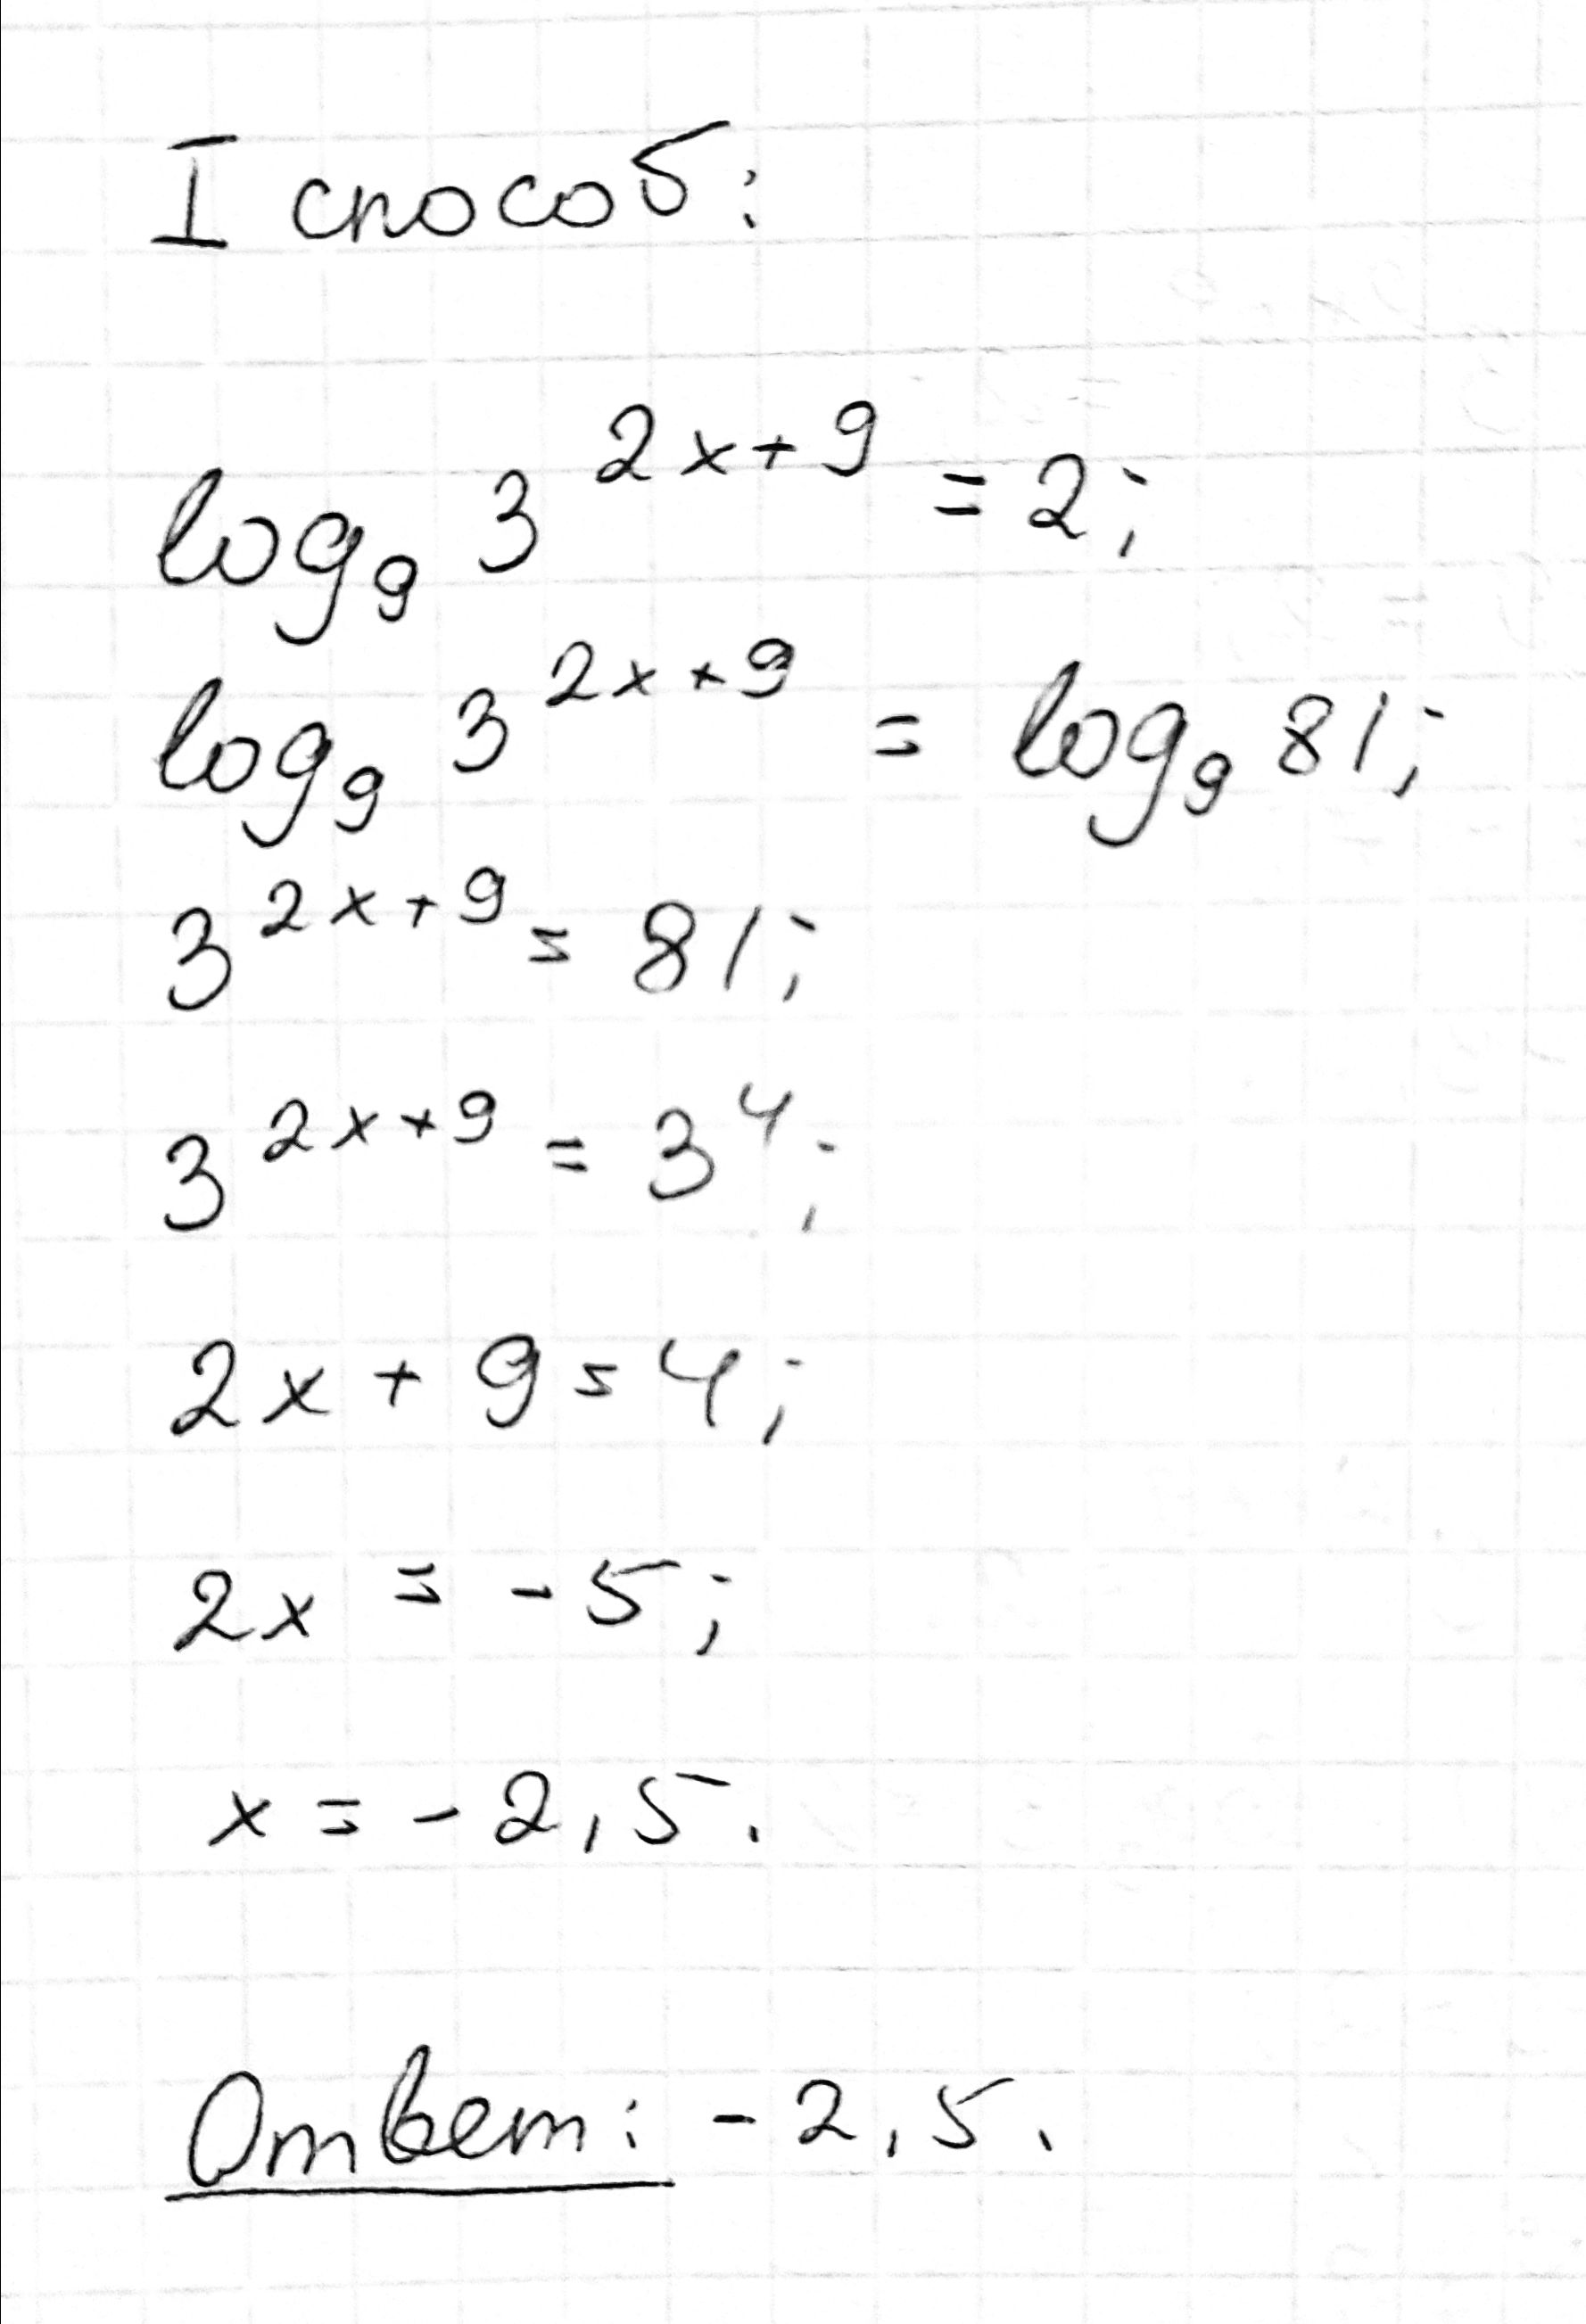 I способ:
log₉ 3^(2x+9) = 2;
log₉ 3^(2x+9) = log₉ 81;
3^(2x+9) = 81;
3^(2x+9) = 3^4;
2x + 9 = 4;
2x = -5;
x = -2,5.
Ответ: -2,5.